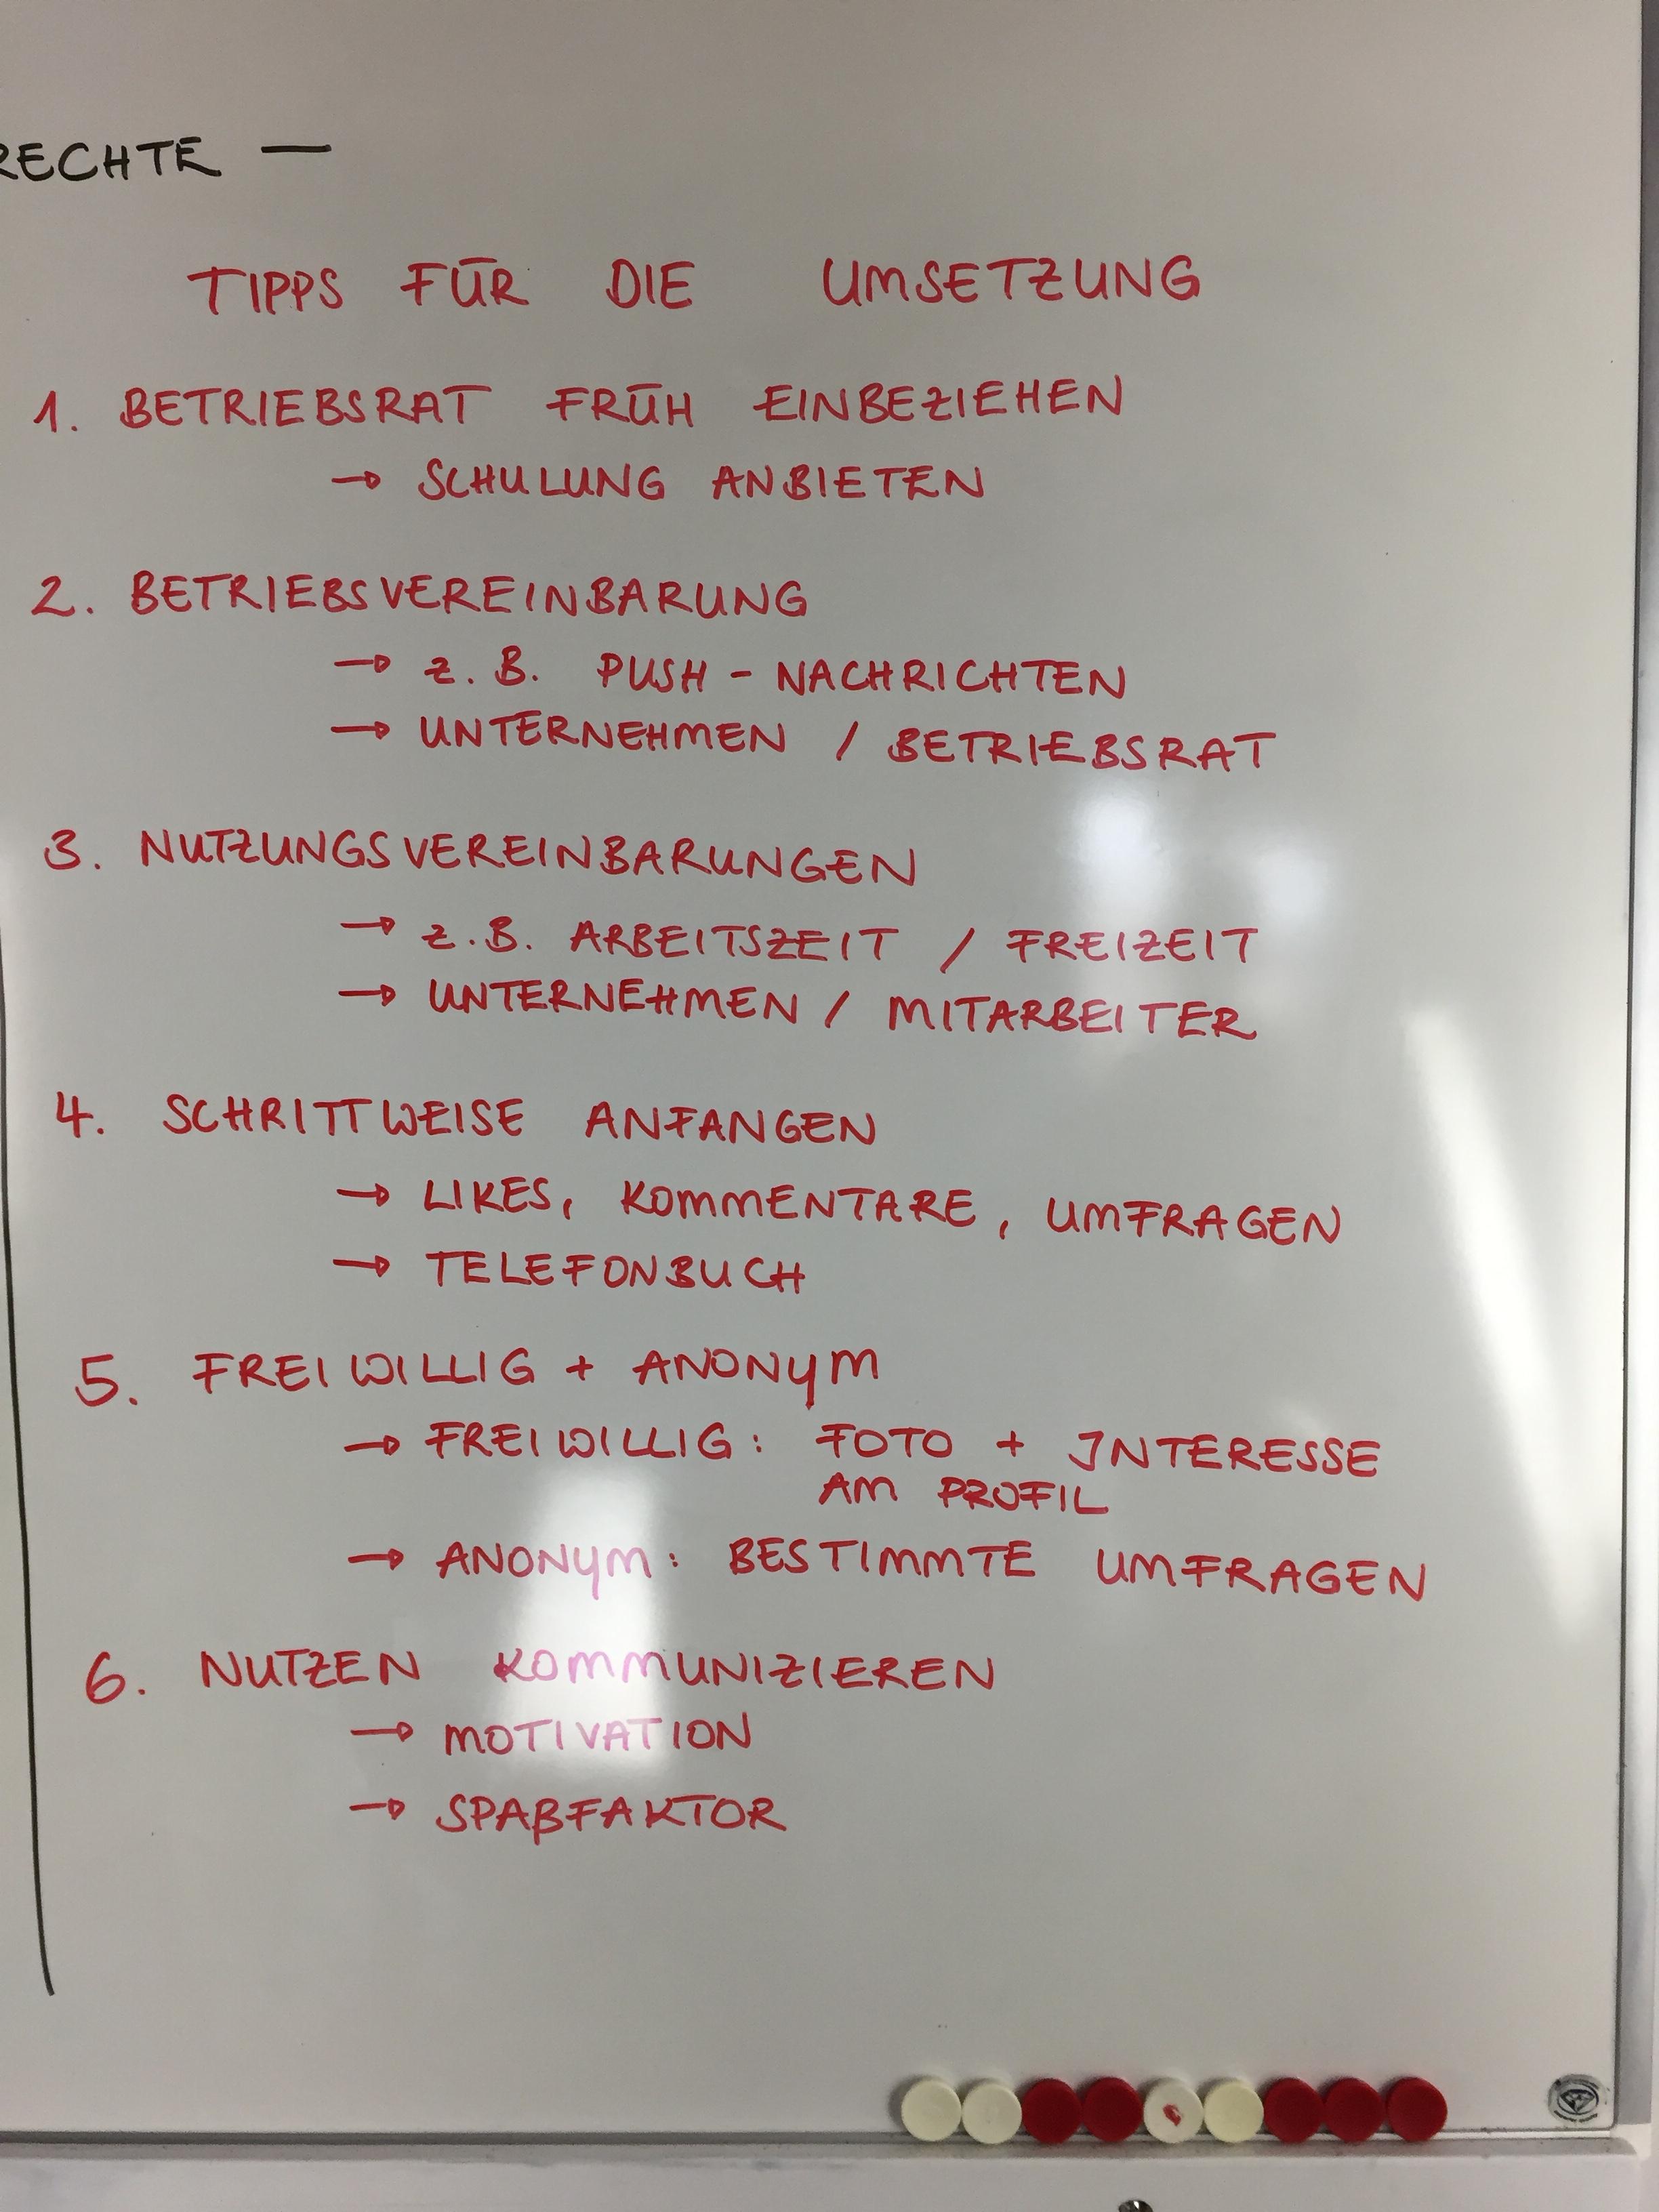 RECHTE —
TIPPS FÜR DIE UMSETZUNG
1. BETRIEBSRAT FRÜH EINBEZIEHEN
→ SCHULUNG ANBIETEN
2. BETRIEBSVEREINBARUNG
→ z.B. PUSH-NACHRICHTEN
→ UNTERNEHMEN / BETRIEBSRAT
3. NUTZUNGSVEREINBARUNGEN
→ z.B. ARBEITSZEIT / FREIZEIT
→ UNTERNEHMEN / MITARBEITER
4. SCHRITTWEISE ANFANGEN
→ LIKES, KOMMENTARE, UMFRAGEN
→ TELEFONBUCH
5. FREIWILLIG + ANONYM
→ FREIWILLIG: FOTO + INTERESSE
AM PROFIL
→ ANONYM: BESTIMMTE UMFRAGEN
6. NUTZEN KOMMUNIZIEREN
→ MOTIVATION
→ SPAßFAKTOR